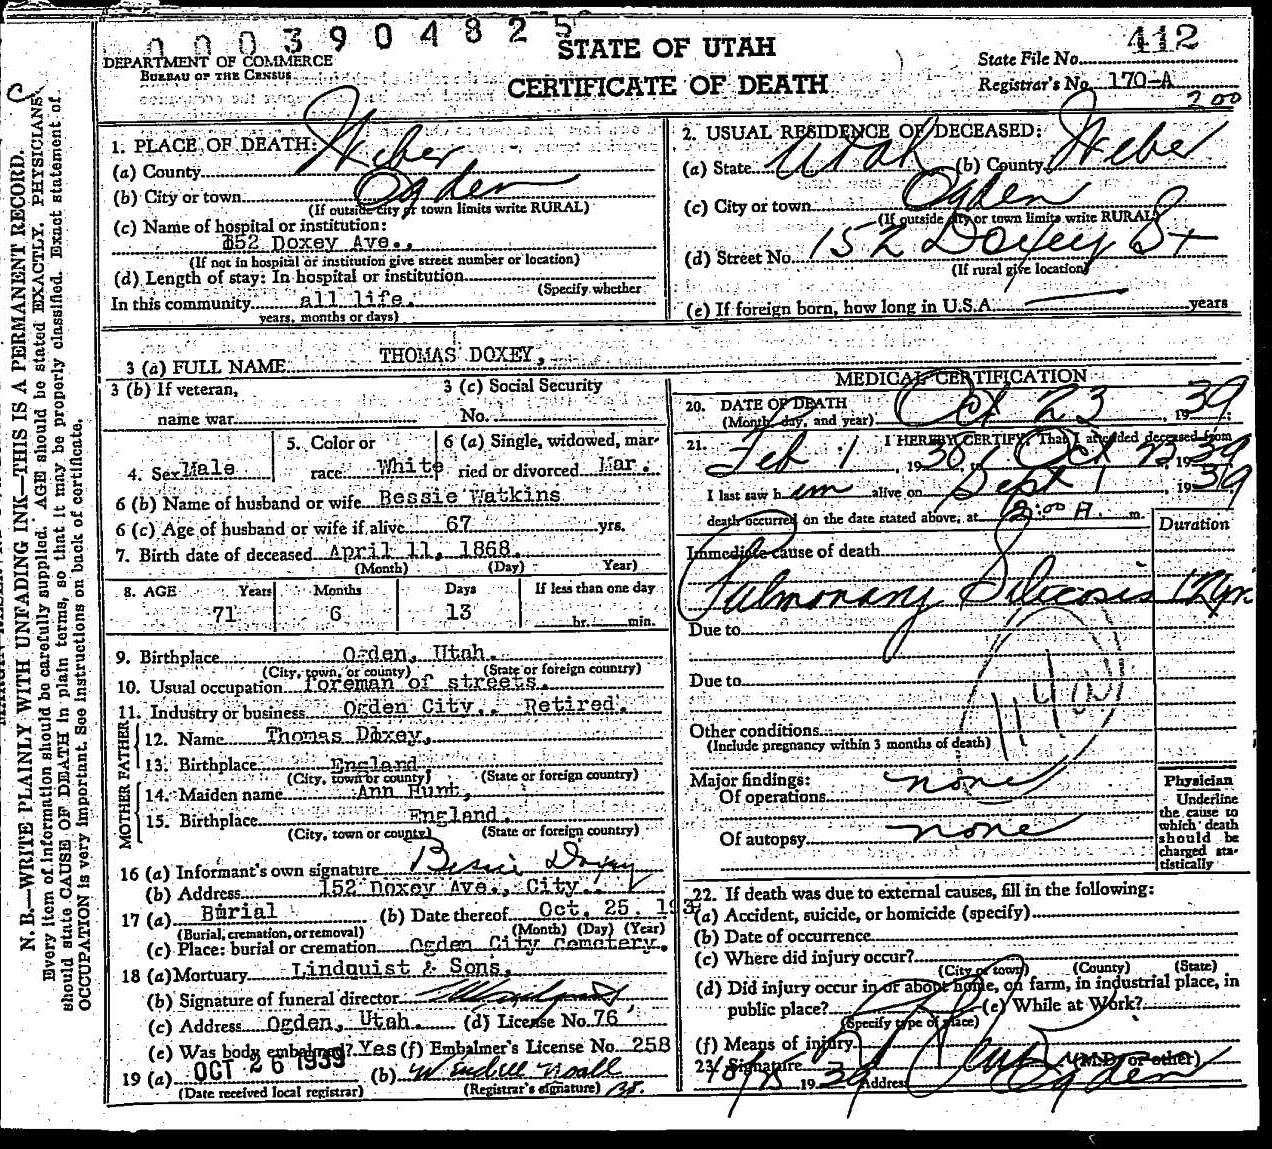 0003904825
STATE OF UTAH
CERTIFICATE OF DEATH
DEPARTMENT OF COMMERCE
BUREAU OF THE CENSUS
412
State File No.
Registrar's No. 170-A
2 00
1. PLACE OF DEATH:
(a) County Weber
(b) City or town Ogden
(If outside city or town limits write RURAL)
(c) Name of hospital or institution:
152 Doxey Ave.,
(If not in hospital or institution give street number or location)
(d) Length of stay: In hospital or institution
(Specify whether
In this community all life.
years, months or days)
2. USUAL RESIDENCE OF DECEASED:
(a) State Utah (b) County Weber
(c) City or town Ogden
(If outside city or town limits write RURAL)
(d) Street No. 152 Doxey St
(If rural give location)
(e) If foreign born, how long in U.S.A. years
3 (a) FULL NAME THOMAS DOXEY,
3 (b) If veteran,
name war
3 (c) Social Security
No.
4. Sex Male
5. Color or
race White
6 (a) Single, widowed, mar-
ried or divorced Mar.
6 (b) Name of husband or wife Bessie Watkins
6 (c) Age of husband or wife if alive 67 yrs.
7. Birth date of deceased April 11, 1868.
(Month) (Day) Year)
8. AGE Years Months Days If less than one day
71 6 13 hr. min.
9. Birthplace Ogden, Utah.
(City, town, or county) (State or foreign country)
10. Usual occupation foreman of streets.
11. Industry or business Ogden City.. Retired.
FATHER
12. Name Thomas Doxey,
13. Birthplace England
(City, town or county) (State or foreign country)
MOTHER
14. Maiden name Ann Hunt,
15. Birthplace England.
(City, town or county) (State or foreign country)
16 (a) Informant's own signature Bessie Doxey
(b) Address 152 Doxey Ave., City.
17 (a) Burial (b) Date thereof Oct. 25. 193
(Burial, cremation, or removal) (Month) (Day) (Year)
(c) Place: burial or cremation Ogden City Cemetery.
18 (a) Mortuary Lindquist & Sons,
(b) Signature of funeral director
(c) Address Ogden, Utah. (d) License No. 76
(e) Was body embalmed? Yes (f) Embalmer's License No. 258
19 (a) OCT 26 1939 (b) Wendell Noall
(Date received local registrar) (Registrar's signature)
MEDICAL CERTIFICATION
20. DATE OF DEATH
(Month, day, and year) Oct 23, 1939
21. I HEREBY CERTIFY, That I attended deceased from
Feb 1, 1930, to Oct 23 1939
I last saw him alive on Sept 1, 1939
death occurred on the date stated above, at 12:00 A. m.
Duration
Immediate cause of death
Pulmonary Silicosis 12 yr
Due to
Due to
114a
Other conditions
(Include pregnancy within 3 months of death)
Major findings:
Of operations none
Of autopsy none
Physician
Underline
the cause to
which death
should be
charged sta-
tistically
22. If death was due to external causes, fill in the following:
(a) Accident, suicide, or homicide (specify)
(b) Date of occurrence
(c) Where did injury occur?
(City or town) (County) (State)
(d) Did injury occur in or about home, on farm, in industrial place, in
public place? (e) While at Work?
(Specify type of place)
(f) Means of injury
23. Signature (M.D. or other)
1939 Address Ogden
N. B.—WRITE PLAINLY WITH UNFADING INK—THIS IS A PERMANENT RECORD.
Every item of information should be carefully supplied. AGE should be stated EXACTLY. PHYSICIANS
should state CAUSE OF DEATH in plain terms, so that it may be properly classified. Exact statement of
OCCUPATION is very important. See instructions on back of certificate.